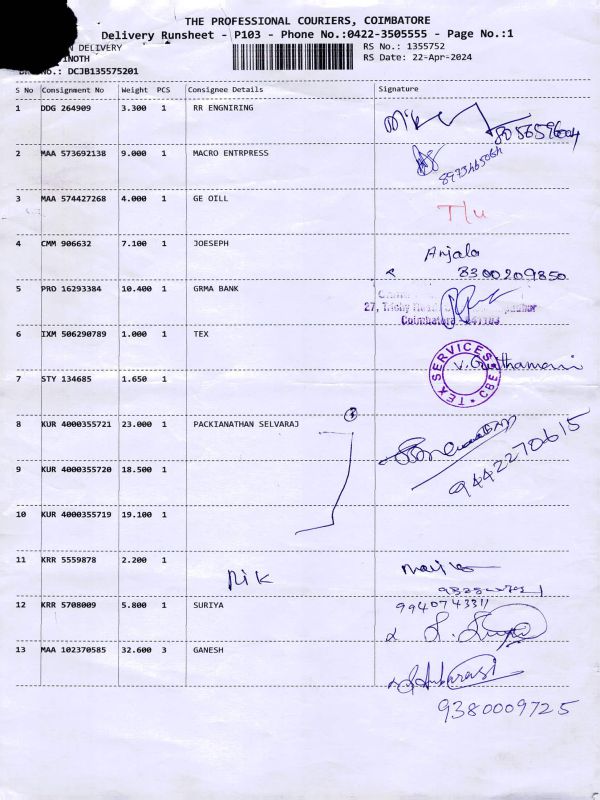 THE PROFESSIONAL COURIERS, COIMBATORE
Delivery Runsheet - P103 - Phone No.:0422-3505555 - Page No.:1
DELIVERY
RS No.: 1355752
RS Date: 22-Apr-2024
No.: DCJB135575201
S No Consignment No Weight PCS Consignee Details Signature
1 DDG 264909 3.300 1 RR ENGNIRING
2 MAA 573692138 9.000 1 MACRO ENTRPRESS
3 MAA 574427268 4.000 1 GE OILL
4 CMM 906632 7.100 1 JOESEPH Anjala
8300209850
5 PRO 16293384 10.400 1 GRMA BANK
27, Trichy
Coimbatore
6 IXM 506290789 1.000 1 TEX
TEX SERVICES * CBE *
7 STY 134685 1.650 1
8 KUR 4000355721 23.000 1 PACKIANATHAN SELVARAJ 3
9442270615
9 KUR 4000355720 18.500 1
10 KUR 4000355719 19.100 1
11 KRR 5559878 2.200 1
12 KRR 5708009 5.800 1 SURIYA 9940743311
13 MAA 102370585 32.600 3 GANESH
9380009725